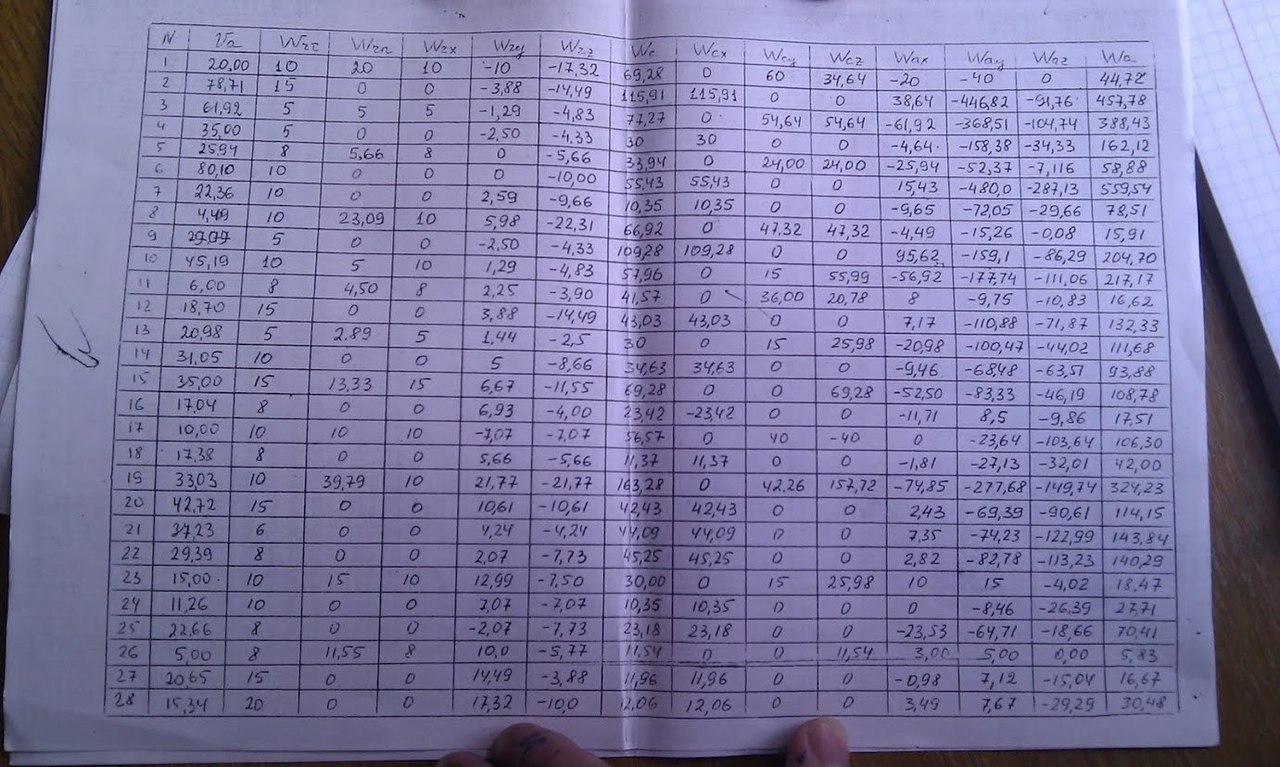 N Va Wrτ Wrn Wrx Wry Wrz Wc Wcx Wcy Wcz Wax Way Waz Wa
1 20,00 10 20 10 -10 -17,32 69,28 0 60 34,64 -20 -40 0 44,72
2 78,71 15 0 0 -3,88 -14,49 115,91 115,91 0 0 38,64 -446,82 -91,76 457,78
3 61,92 5 5 5 -1,29 -4,83 77,27 0 54,64 54,64 -61,92 -368,51 -104,74 388,43
4 35,00 5 0 0 -2,50 -4,33 30 30 0 0 -4,64 -158,38 -34,33 162,12
5 25,94 8 5,66 8 0 -5,66 33,94 0 24,00 24,00 -25,94 -52,37 -7,116 58,88
6 80,10 10 0 0 0 -10,00 55,43 55,43 0 0 15,43 -480,0 -287,13 559,54
7 22,36 10 0 0 2,59 -9,66 10,35 10,35 0 0 -9,65 -72,05 -29,66 78,51
8 4,49 10 23,09 10 5,98 -22,31 66,92 0 47,32 47,32 -4,49 -15,26 -0,08 15,91
9 5 0 0 -2,50 -4,33 109,28 109,28 0 0 95,62 -159,1 -86,29 204,70
10 45,19 10 5 10 1,29 -4,83 57,96 0 15 55,99 -56,92 -177,74 -111,06 217,17
11 6,00 8 4,50 8 2,25 -3,90 41,57 0 36,00 20,78 8 -9,75 -10,83 16,62
12 18,70 15 0 0 3,88 -14,49 43,03 43,03 0 0 7,17 -110,88 -71,87 132,33
13 20,98 5 2,89 5 1,44 -2,5 30 0 15 25,98 -20,98 -100,47 -44,02 111,68
14 31,05 10 0 0 5 -8,66 34,63 34,63 0 0 -9,46 -68,48 -63,51 93,88
15 35,00 15 13,33 15 6,67 -11,55 69,28 0 0 69,28 -52,50 -83,33 -46,19 108,78
16 17,04 8 0 0 6,93 -4,00 23,42 -23,42 0 0 -11,71 8,5 -9,86 17,51
17 10,00 10 10 10 -7,07 -7,07 56,57 0 40 -40 0 -23,64 -103,64 106,30
18 17,38 8 0 0 5,66 -5,66 11,37 11,37 0 0 -1,81 -27,13 -32,01 42,00
19 33,03 10 39,79 10 21,77 -21,77 163,28 0 42,26 157,72 -74,85 -277,68 -149,74 324,23
20 42,72 15 0 0 10,61 -10,61 42,43 42,43 0 0 2,43 -69,39 -90,61 114,15
21 37,23 6 0 0 4,24 -4,24 44,09 44,09 0 0 7,35 -74,23 -122,99 143,84
22 29,39 8 0 0 2,07 -7,73 45,25 45,25 0 0 2,82 -82,78 -113,23 140,29
23 15,00 10 15 10 12,99 -7,50 30,00 0 15 25,98 10 15 -4,02 18,47
24 11,26 10 0 0 7,07 -7,07 10,35 10,35 0 0 0 -8,46 -26,39 27,71
25 22,66 8 0 0 -2,07 -7,73 23,18 23,18 0 0 -23,53 -64,71 -18,66 70,41
26 5,00 8 11,55 8 10,0 -5,77 11,54 0 0 11,54 3,00 5,00 0,00 5,83
27 20,65 15 0 0 14,49 -3,88 11,96 11,96 0 0 -0,98 7,12 -15,04 16,67
28 15,34 20 0 0 17,32 -10,0 12,06 12,06 0 0 3,49 7,67 -29,29 30,48